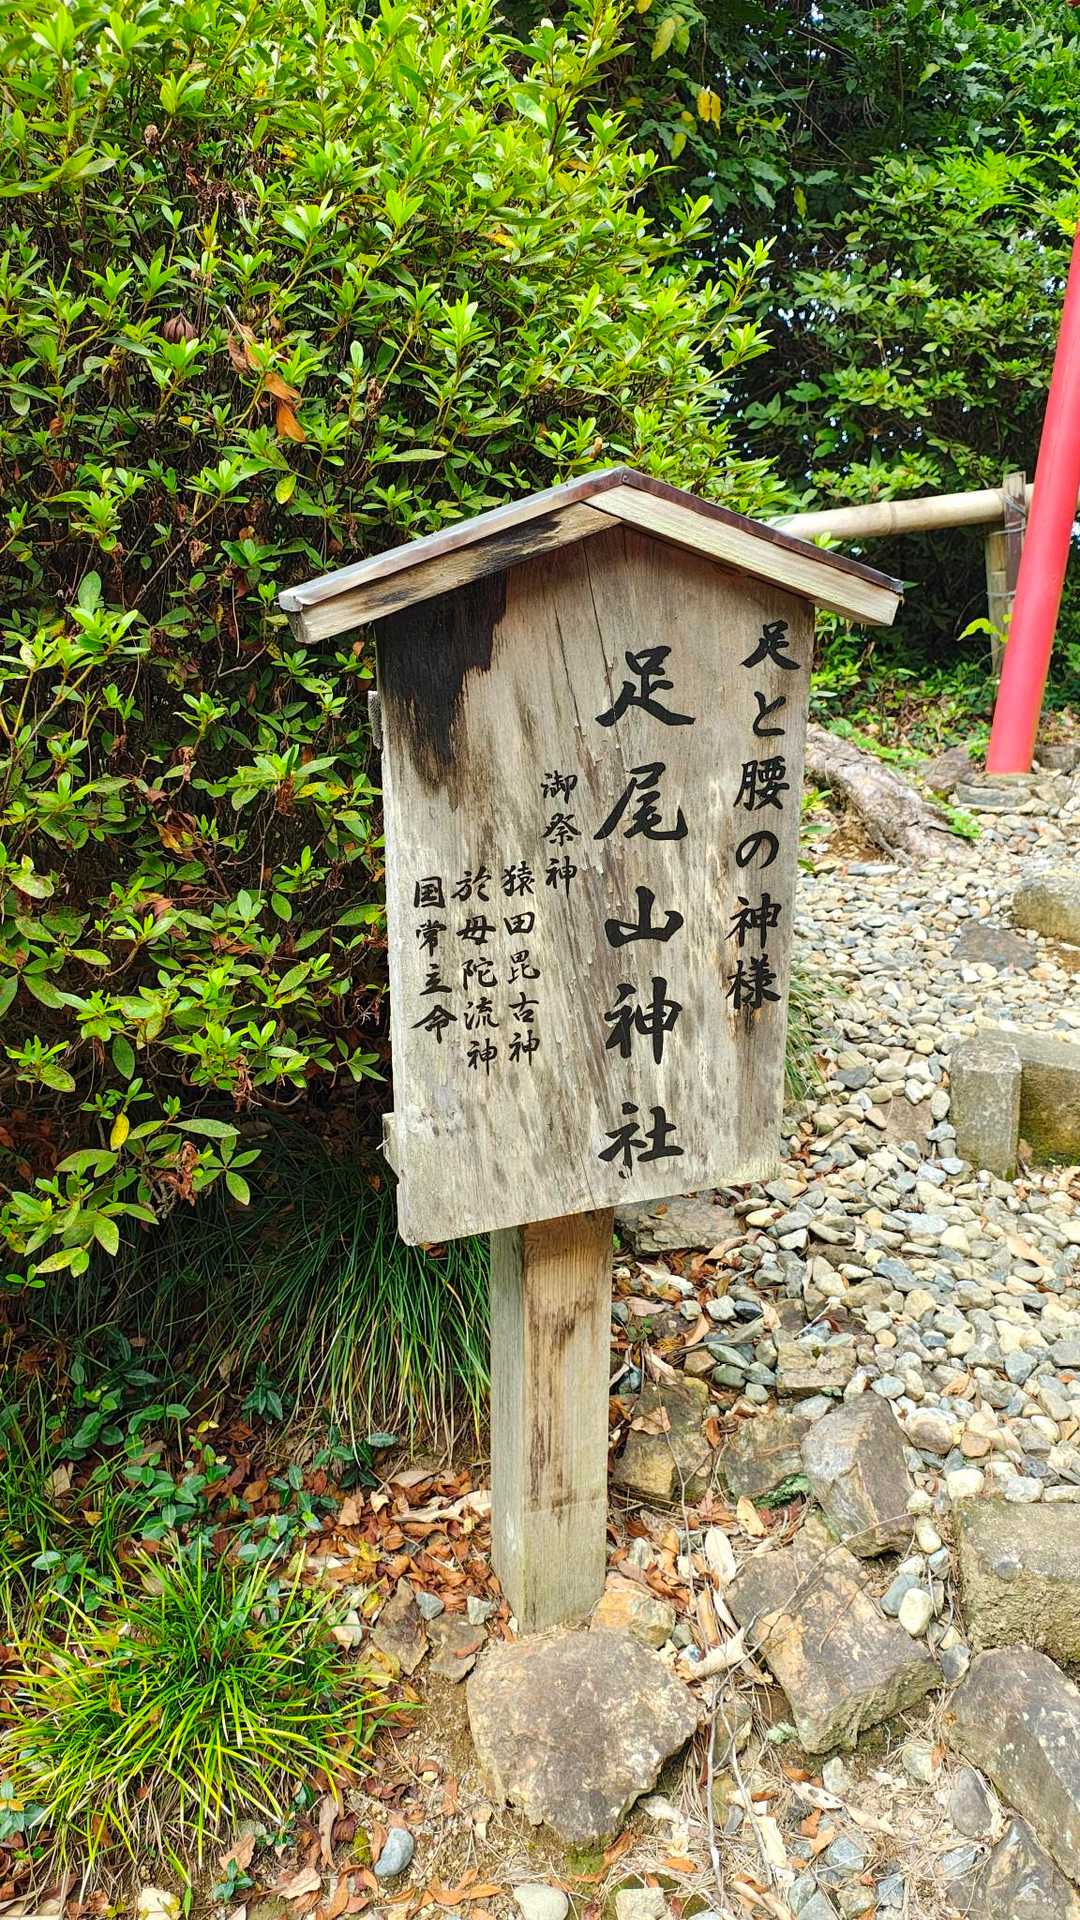 足と腰の神様
足尾山神社
御祭神
猿田毘古神
於母陀流神
国常立命